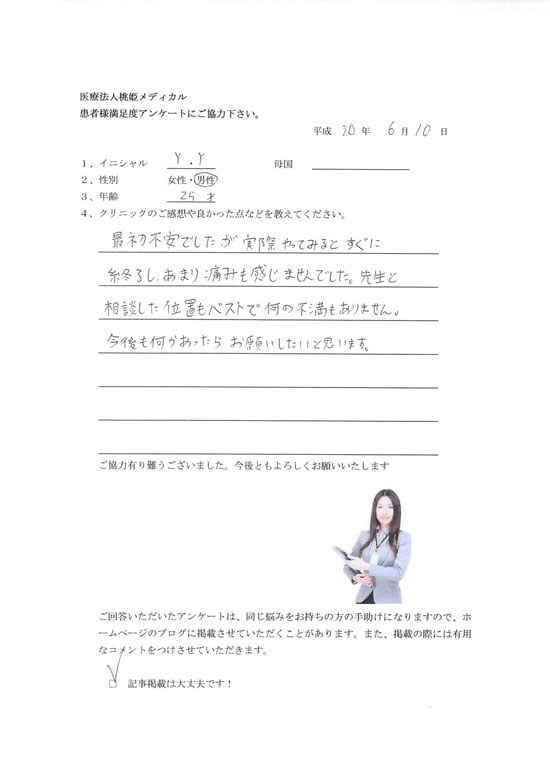 医療法人桃姫メディカル
患者様満足度アンケートにご協力下さい。
平成 30 年 6 月 10 日
1、イニシャル Y.Y 母国
2、性別 女性・男性
3、年齢 25才
4、クリニックのご感想や良かった点などを教えてください。
最初不安でしたが実際やってみるとすぐに
終了し、あまり痛みも感じませんでした。先生と
相談した位置もベストで何の不満もありません。
今後も何かあったらお願いしたいと思います。
ご協力有り難うございました。今後ともよろしくお願いいたします
ご回答いただいたアンケートは、同じ悩みをお持ちの方の手助けになりますので、ホ
ームページのブログに掲載させていただくことがあります。また、掲載の際には有用
なコメントをつけさせていただきます。
☑ 記事掲載は大丈夫です！